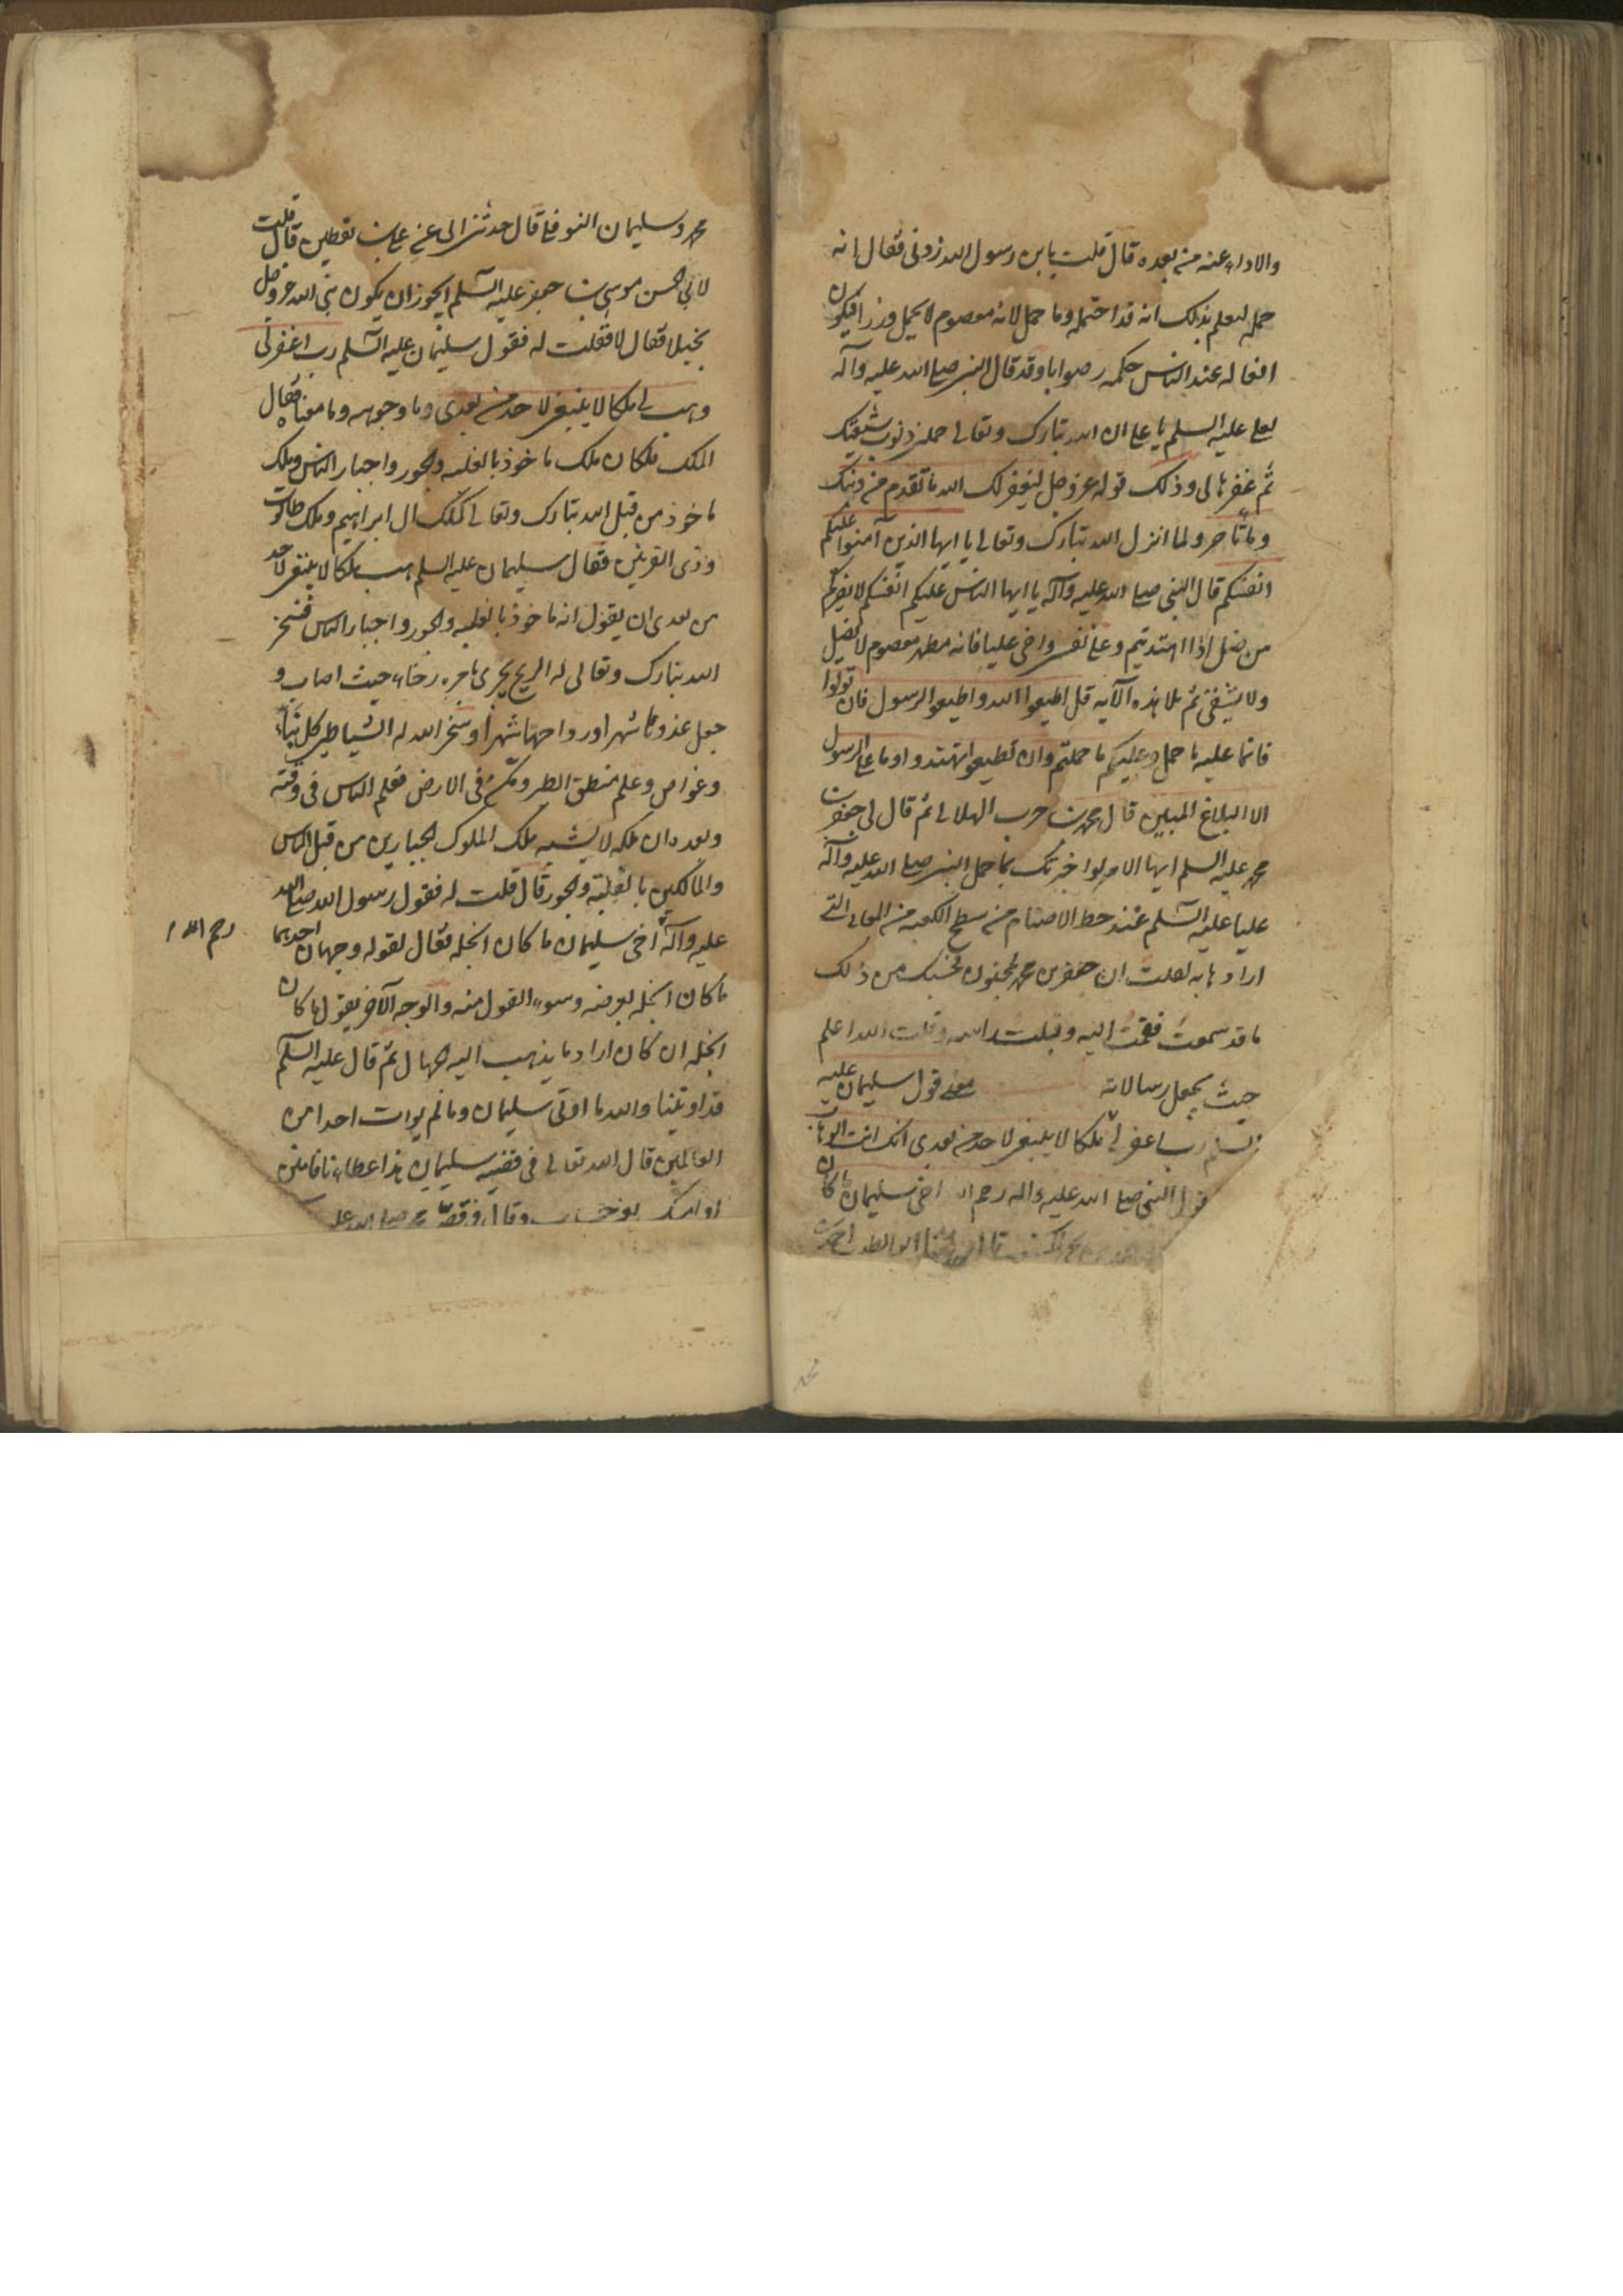 والاداء عنه من بعده قال قلت يابن رسول الله زدني فقال انه
حمله ليعلم بذلك انه قد احتمله وما حمل لانه معصوم لا يحمل وزرا فيكون
افعاله عند الناس حكمه وصوابا وقد قال النبي صلى الله عليه وآله
لعلي عليه السلم يا علي ان الله تبارك وتعالى حملني ذنوب شيعتك
ثم غفرها لي وذلك قوله عز وجل ليغفر لك الله ما تقدم من ذنبك
وما تأخر ولما انزل الله تبارك وتعالى يا ايها الذين آمنوا عليكم
انفسكم قال النبي صلى الله عليه وآله يا ايها الناس عليكم انفسكم لا يضركم
من ضل اذا اهتديتم وعلي نفسي واخي عليا فانه مطهر معصوم لا يضل
ولا يشقى ثم تلا هذه الآيه قل اطيعوا الله واطيعوا الرسول فان تولوا
فانما عليه ما حمل وعليكم ما حملتم وان تطيعوه تهتدوا وما على الرسول
الا البلاغ المبين قال محمد بن حرب الهلالي ثم قال لي جعفر بن
محمد عليه السلم ايها الامير لو اخبرتك بما حمل النبي صلى الله عليه وآله
عليا عليه السلم عند حط الاصنام من سطح الكعبه من المعاني التي
ارادها به لقلت ان جعفر بن محمد لمجنون فحسبك من ذلك
ما قد سمعت فقمت اليه وقبلت راسه وقلت الله اعلم
حيث يجعل رسالاته معنى قول سليمان عليه
السلم رب اغفر لي ملكا لا ينبغي لاحد من بعدي انك انت الوهاب
قول النبي صلى الله عليه واله رحم الله اخي سليمان ما كان
ابو الطيب احمد بن
محمد وسليمان النوفلي قال حدثني ابي عن علي بن يقطين قال قلت
لابي الحسن موسى بن جعفر عليه السلم ايجوز ان يكون نبي الله عز وجل
بخيلا فقال لا فقلت له فقول سليمان عليه السلم رب اغفر لي
وهب لي ملكا لا ينبغي لاحد من بعدي وما وجهه وما معناه فقال
الملك ملكان ملك ماخوذ بالغلبه والجور واجبار الناس وملك
ماخوذ من قبل الله تبارك وتعالى كملك ال ابراهيم وملك طالوت
وذي القرنين فقال سليمان عليه السلم هب لي ملكا لا ينبغي لاحد
من بعدي ان يقول انه ماخوذ بالغلبه والجور واجبار الناس فسخر
الله تبارك وتعالى له الريح تجري بامره رخاء حيث اصاب و
جعل غدوها شهرا ورواحها شهرا وسخر الله له الشياطين كل بناء
وغواص وعلم منطق الطير ومكن في الارض فعلم الناس في وقته
وبعده ان ملكه لا يشبه ملك الملوك الجبارين من قبل الناس
والمالكين بالغلبة والجور قال قلت له فقول رسول الله صلى الله
عليه وآله اخي سليمان ما كان ابخله فقال لقوله وجهان احدهما
رحم الله
ما كان ابخله بعرضه وسوء القول منه والوجه الآخر يقول ما كان
ابخله ان كان اراد ما يذهب اليه الجهال ثم قال عليه السلم
قد اوتينا والله ما اوتي سليمان وما لم يوات احدا من
العالمين قال الله تعالى في قضيه سليمان هذا عطاءنا فامنن
او امسك بغير حساب وقال في قصة محمد صلى الله عليه